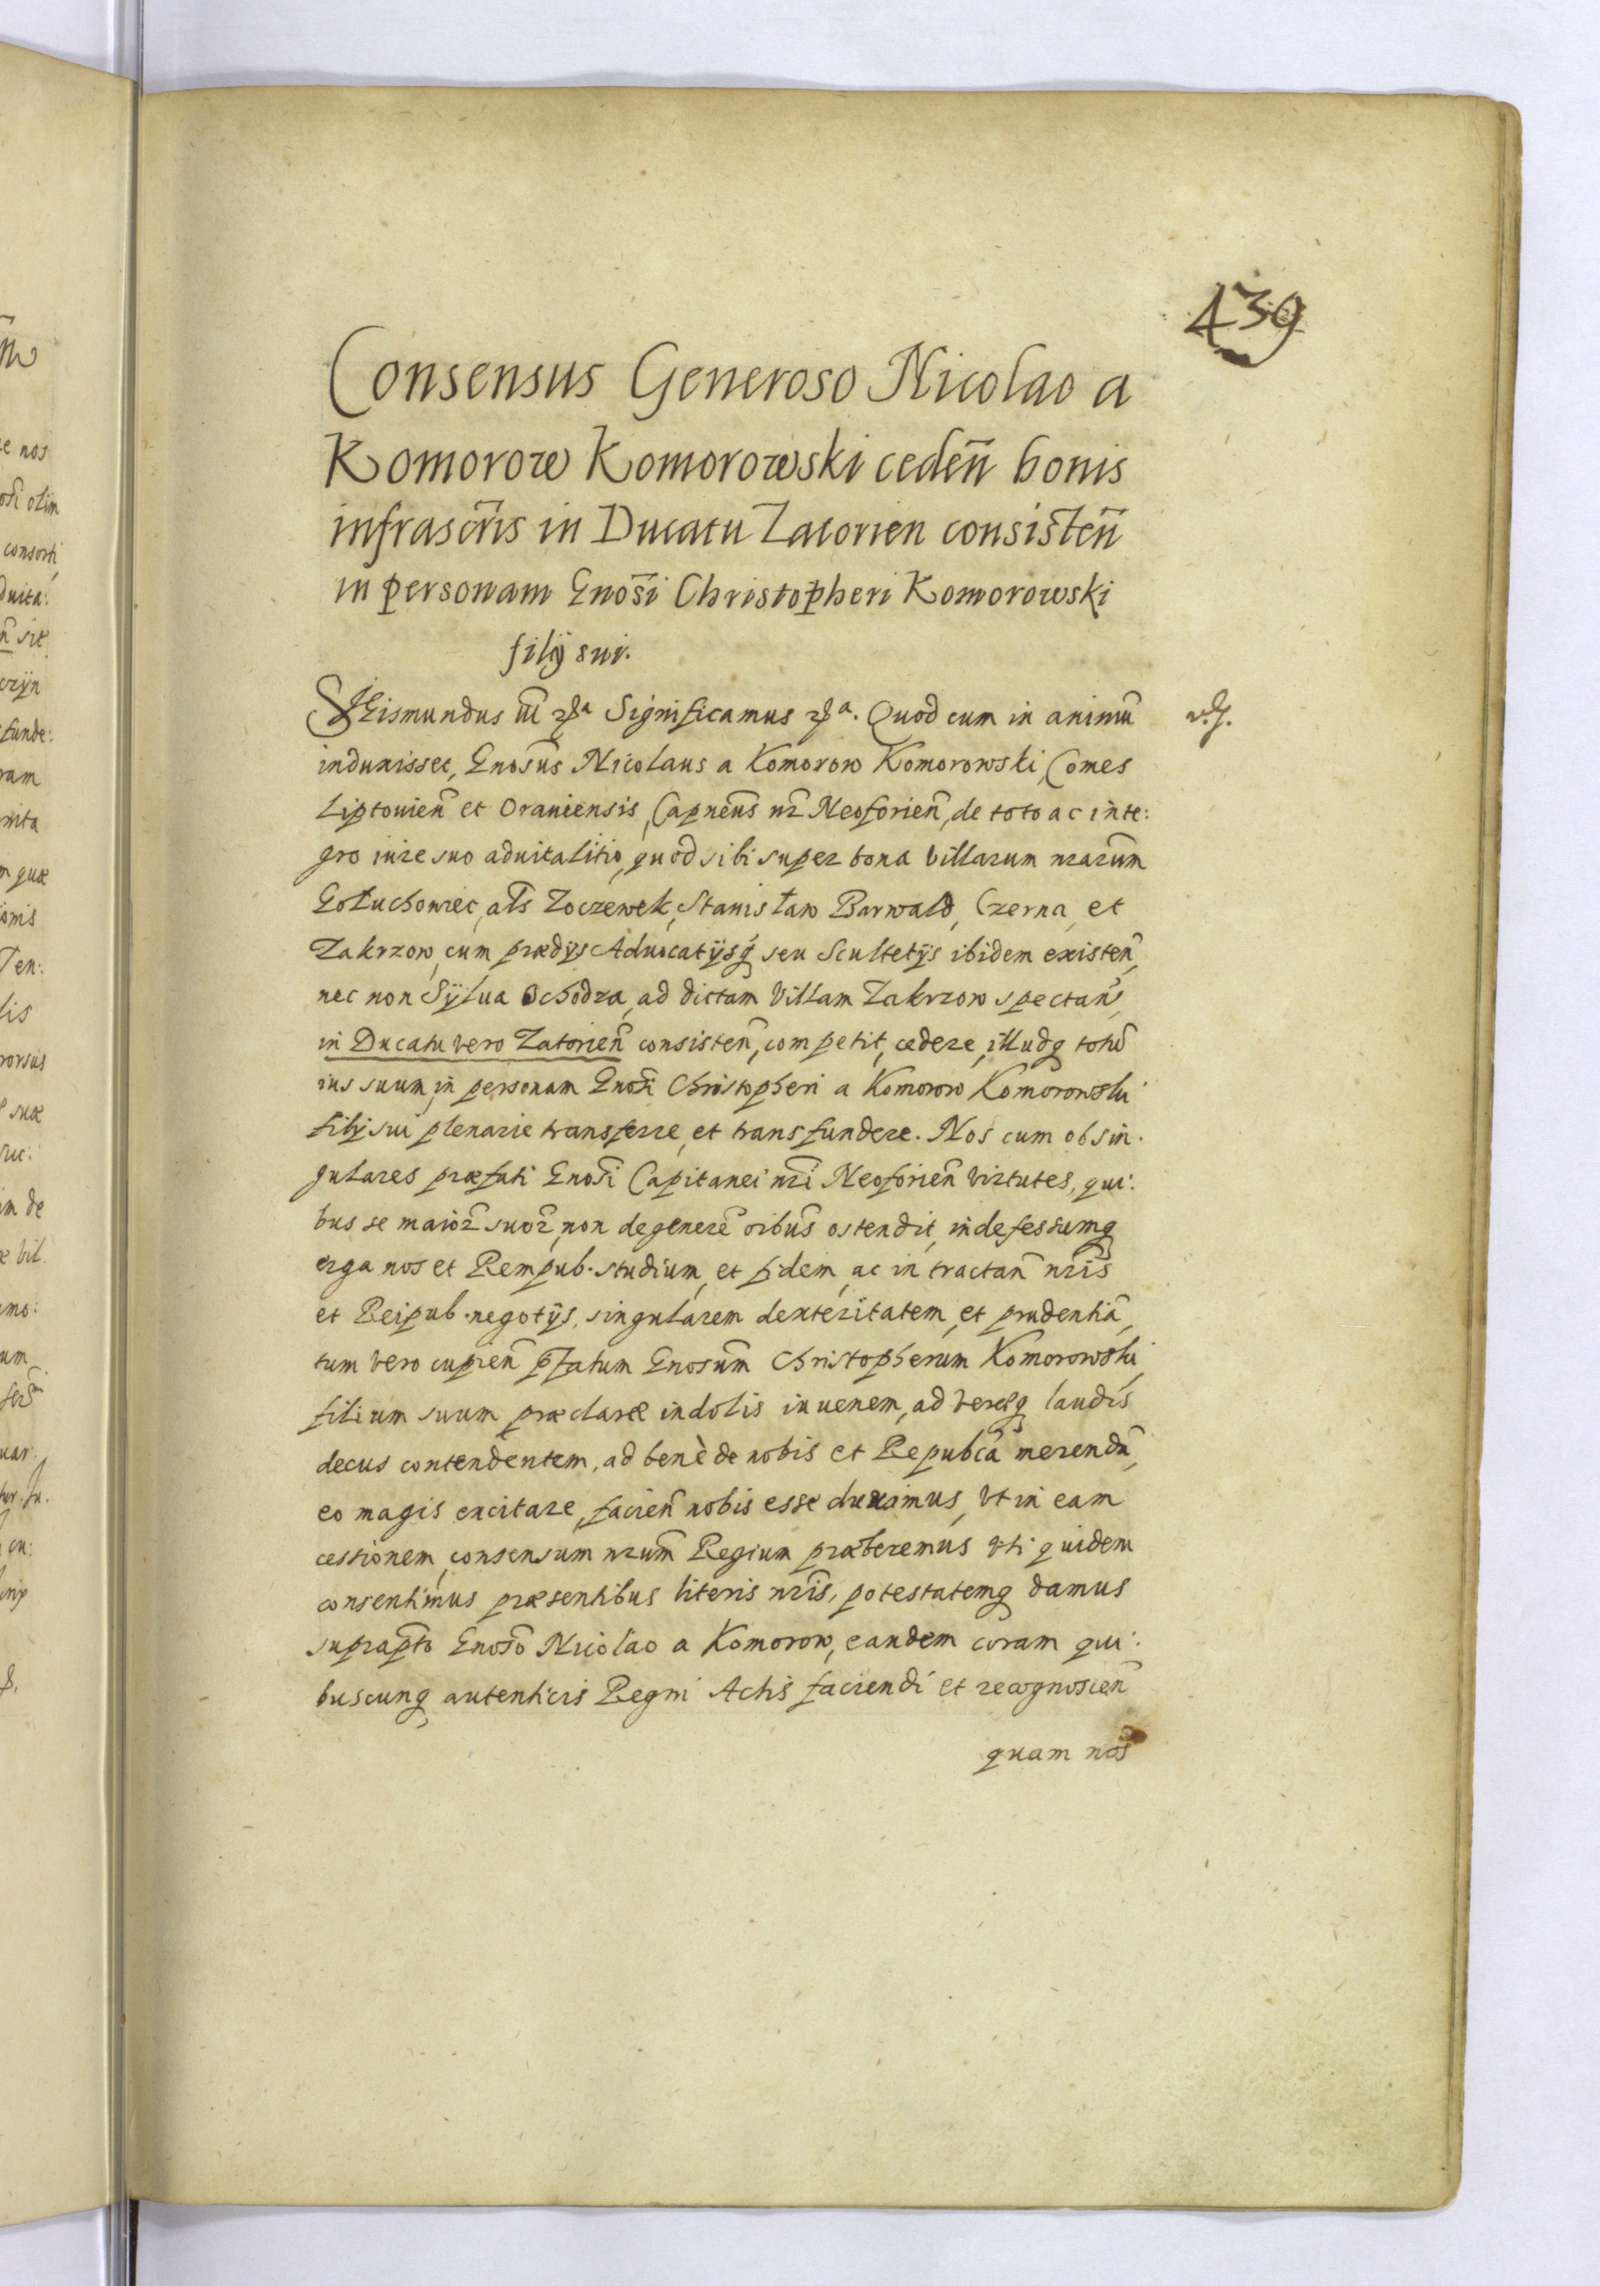 439
Consensus Generoso Nicolao a
Komorow Komorowski cedeñ bonis
infrascr̃is in Ducatu Zatorien consisteñ
in personam Gnosĩ Christopheri Komorowski
filij sui.
Sigismundus III Significamus Quod cum in animũ
induxisset, Gnosũs Nicolaus a Komorow Komorowski Comes
Liptouieñ et Orauiensis, Capneũs nr̃ Neoforieñ, de toto ac inte:
gro iure suo aduitalitio, quod sibi super bona Villarum nrarũm
als̃ Zoczewek, Stanisław Barwald, Czerna, et
Zakrzow, cum prædijs Aduocatijsq́ seu Scultetijs ibidem existeñ,
nec non Sÿlua Ochodza, ad dictam Villam Zakrzow spectañ,
in Ducatu vero Zatorieñ consisteñ, competit, cedere, illudq totũ
ius suum, in personam Gnosĩ Christopheri a Komorow Komorowski
filij sui plenarie transferre, et transfundere. Nos cum ob sin.
gulares præfati Gnosĩ Capitanei nrĩ Neoforieñ Virtutes, qui:
bus se maior̃ suor̃, non degenerẽ oribũs ostendit, indefessumq
erga nos et Rempub. studium, et fidem, ac in tractañ nrĩs
et Reipub. negotijs, singularem dexteritatem, et prudentiã,
tum vero cupieñ p̃fatum Gnosũm Christopherum Komorowski,
filium suum præclaræ indolis iuuenem, ad veræq laudis
decus contendentem, ad benè de nobis et Repubcã merendũ,
eo magis excitare, facieñ nobis esse duximus, Vt in eam
cessionem, consensum nrũm Regium præberemus Vti quidem
consentimus præsentibus literis nrĩs, potestatemq damus
suprap̃to Gnosõ Nicolao a Komorow, eandem coram qui:
buscunq autenticis Regni Actis faciendi et recognosceñ
quam nos